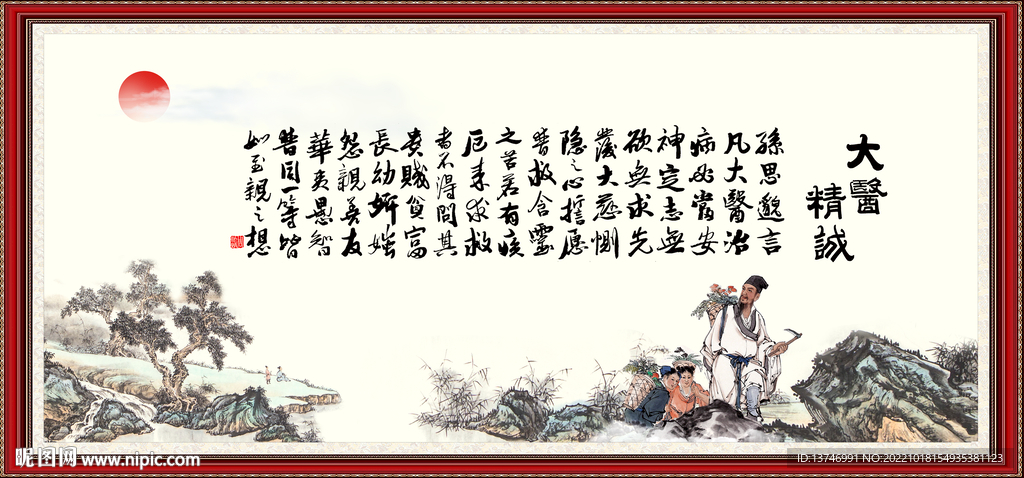 大醫
精誠
孫思邈言
凡大醫治
病必當安
神定志無
欲無求先
發大慈惻
隐之心誓愿
普救含靈
之苦若有疾
厄来求救
者不得問其
贵賤貧富
長幼妍媸
怨親善友
華夷愚智
普同一等皆
如至親之想
昵图网 www.nipic.com
ID:13746991 NO:20221018154935381123